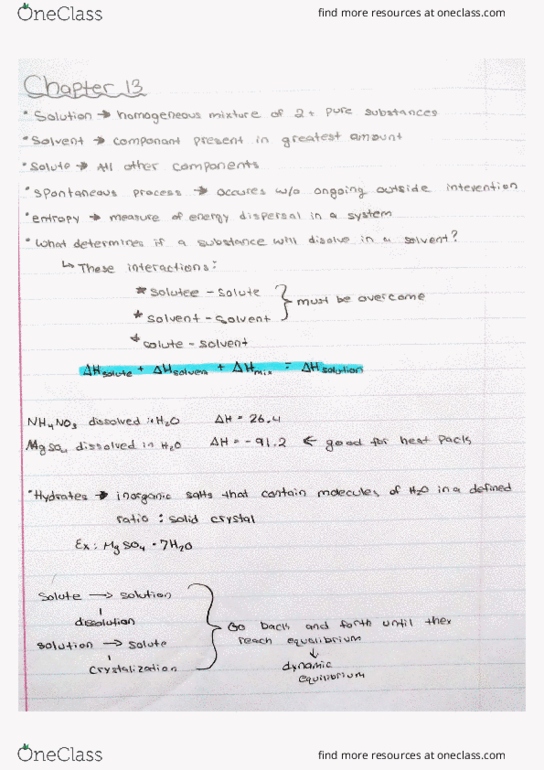 OneClass
find more resources at oneclass.com
Chapter 13
• Solution → homogeneous mixture of 2+ pure substances
• Solvent → componant present in greatest amount
• Solute → All other components
• Spontaneous process → occures w/o ongoing outside intevention
• entropy → measure of energy dispersal in a system
• What determines if a substance will disolve in a solvent?
↳ These interactions:
* Solutee - Solute
* Solvent - Solvent } must be overcome
* solute - solvent
ΔHsolute + ΔHsolven + ΔHmix = ΔHsolution
NH4NO3 dissolved in H2O ΔH = 26.4
MgSO4 dissolved in H2O ΔH = -91.2 ← good for heat packs
• Hydrates → inorganic salts that contain molecules of H2O in a defined
ratio : solid crystal
Ex: MgSO4 • 7H2O
Solute → solution
dissolution
solution → Solute
Crystalization
} Go back and forth until they
reach equilibrium
↓
dynamic
equilibrium
OneClass
find more resources at oneclass.com